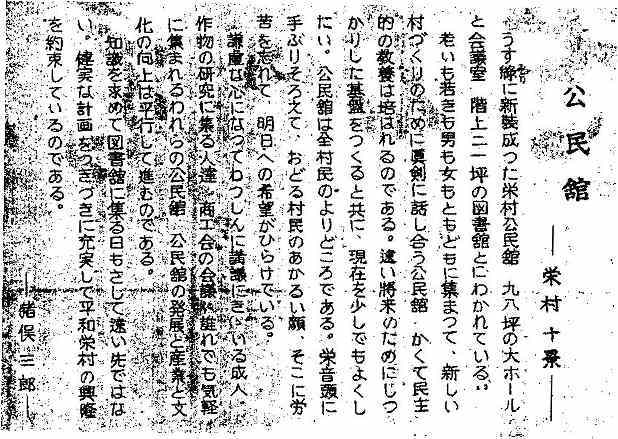 公民館
―栄村十景―
うす緑に新装成つた栄村公民館　九八坪の大ホール
と会議室　階上二一坪の図書館とにわかれている。
老いも若きも男も女もともどもに集まつて、新しい
村づくりのために真剣に話し合う公民館　かくて民主
的の教養は培はれるのである。遠い将来のためにしつ
かりした基盤をつくると共に、現在を少しでもよくし
たい、公民館は全村民のよりどころである。栄音頭に
手ぶりそろえて、おどる村民のあかるい顔、そこに労
苦を忘れて、明日への希望がひらけている。
謙虚な心になつてわつしんに講議にきいいる成人
作物の研究に集る人達　商工会の会議　誰れでも気軽
に集まれるわれらの公民館　公民館の発展と産業と文
化の向上は平行して進むのである。
知識を求めて図書館に集る日もさして遠い先ではな
い。健実な計画をつぎつぎに充実して平和栄村の興隆
を約束しているのである。
―猪俣三郎―